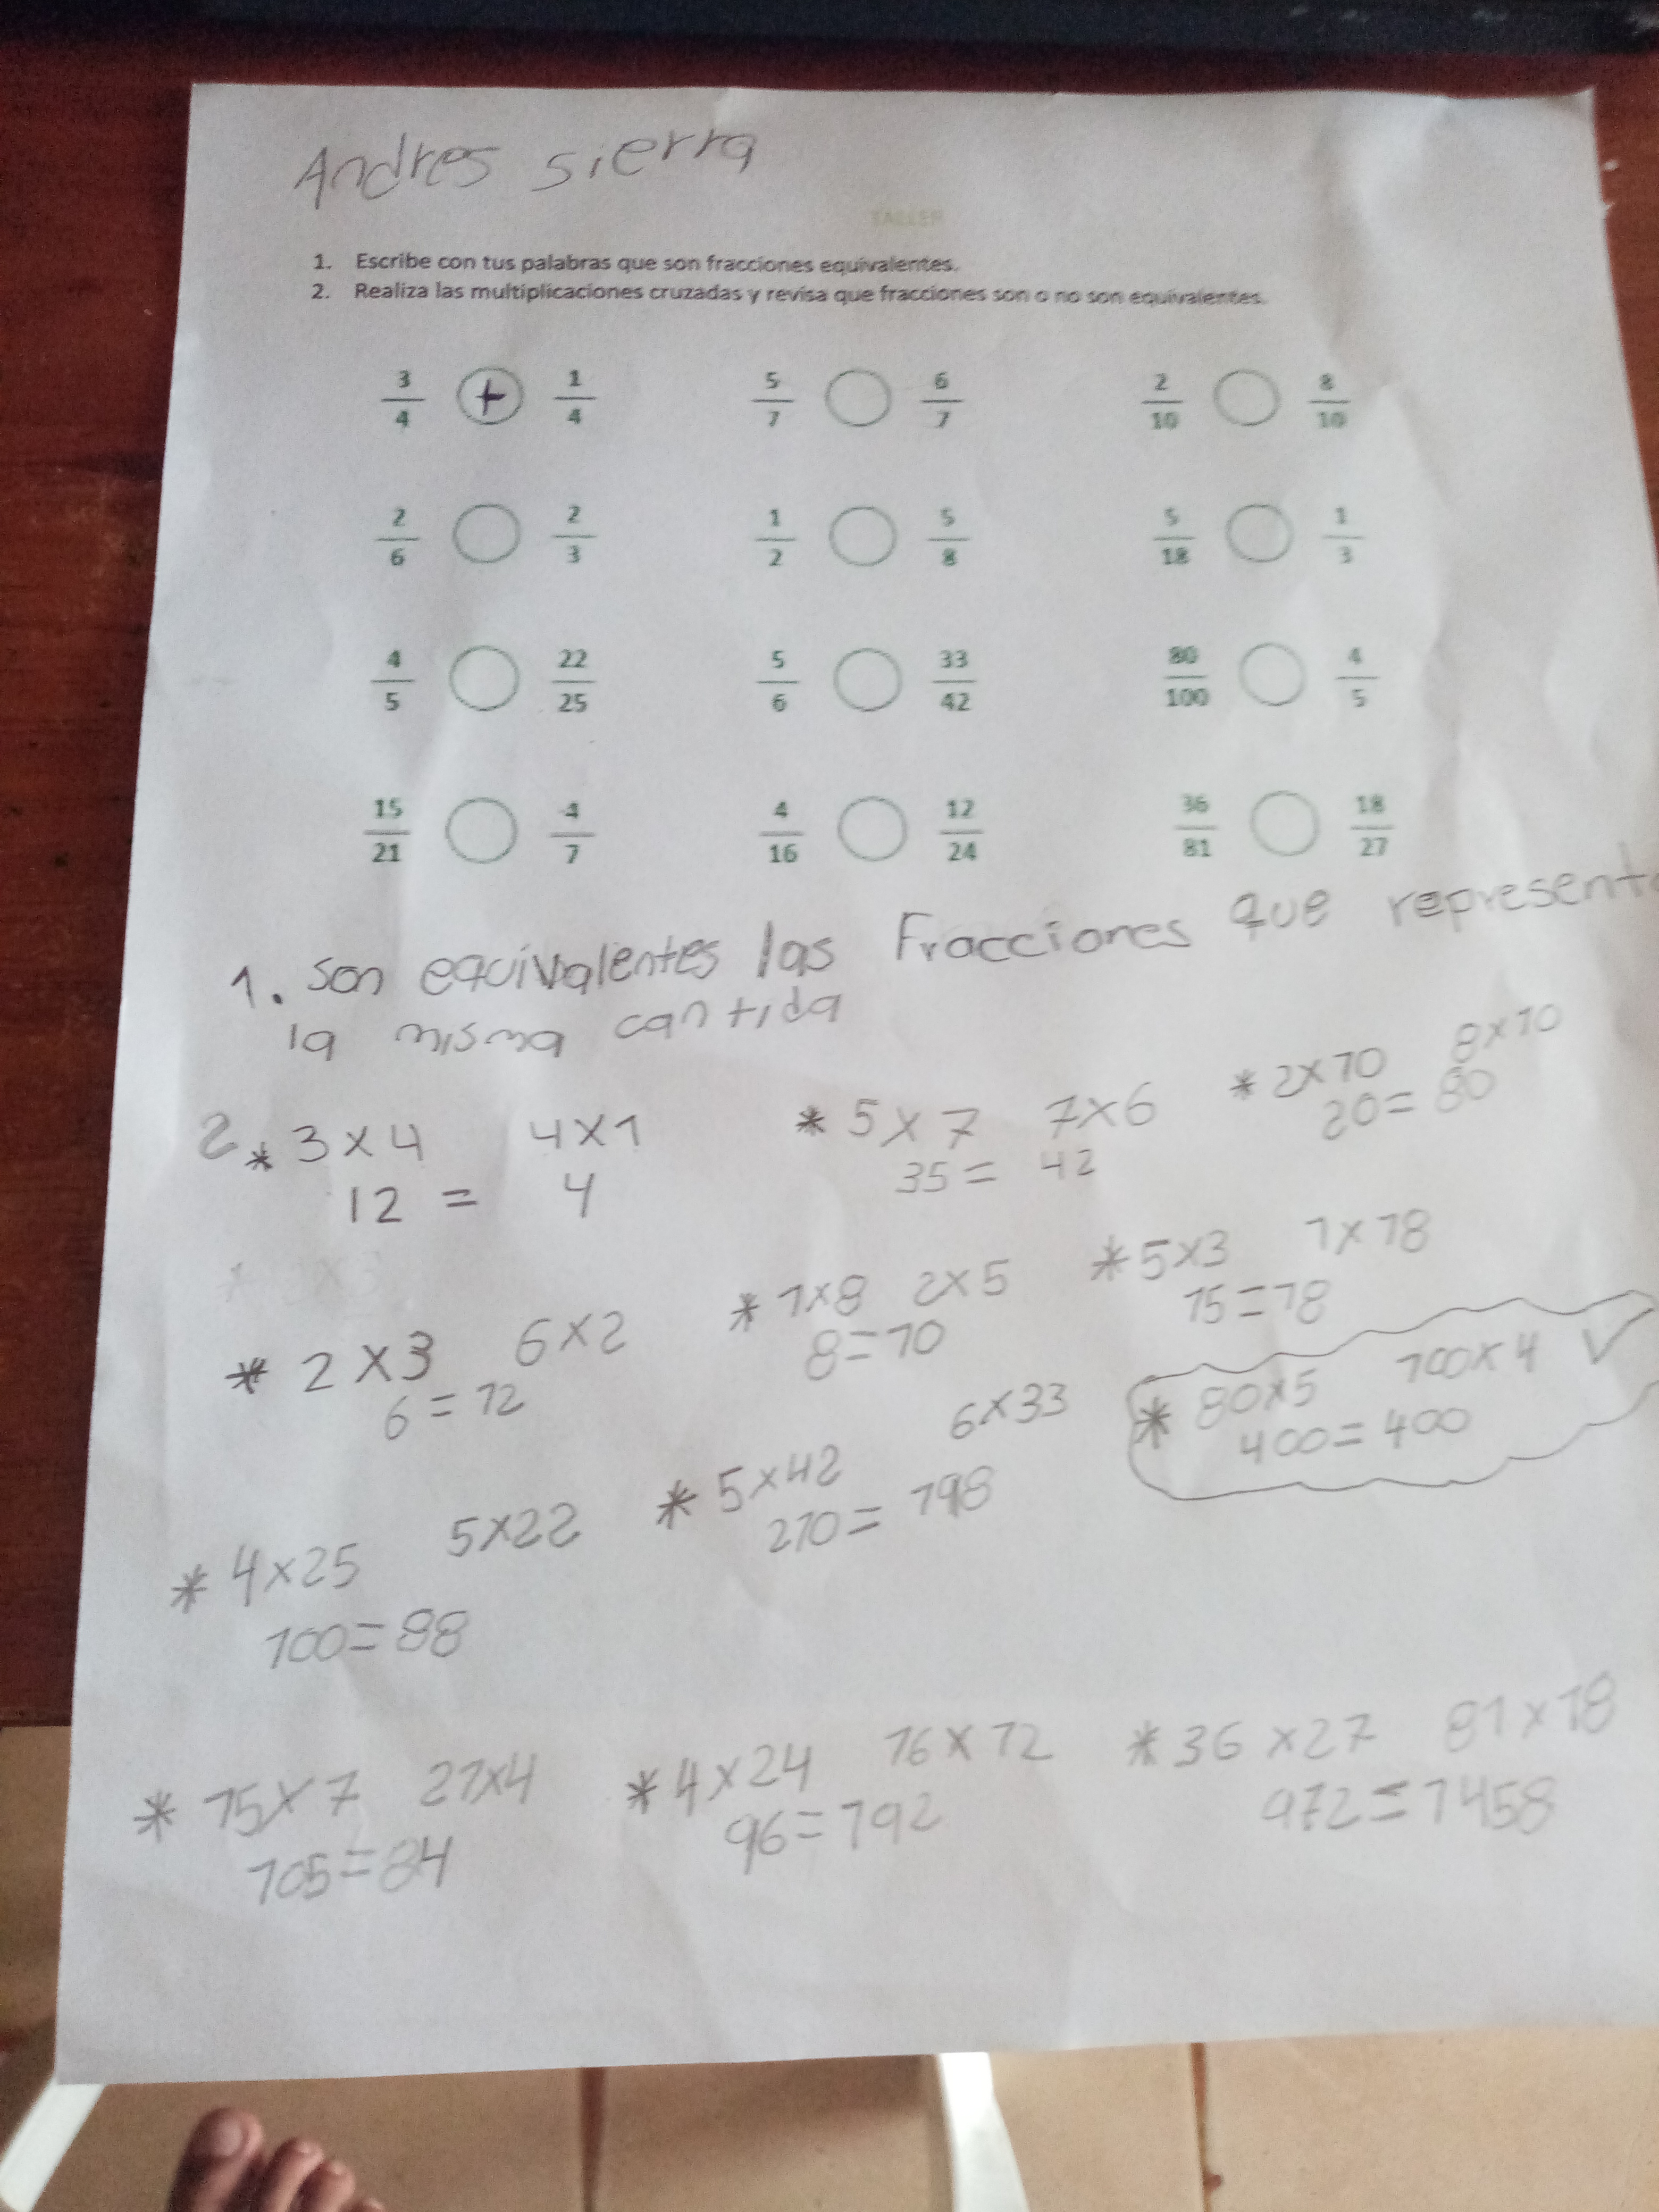 Andres sierra
TALLER
1. Escribe con tus palabras que son fracciones equivalentes.
2. Realiza las multiplicaciones cruzadas y revisa que fracciones son o no son equivalentes.
3/4 + 1/4 5/7 6/7 2/10 8/10
2/6 2/3 1/2 5/8 5/18 1/3
4/5 22/25 5/6 33/42 80/100 4/5
15/21 4/7 4/16 12/24 36/81 18/27
1. son equivalentes las Fracciones que represent
la misma cantida
2 * 3 x 4 4 x 1 * 5 x 7 7 x 6 * 2 x 10 8 x 10
12 = 4 35 = 42 20 = 80
* 2 x 3 6 x 2 * 1 x 8 2 x 5 * 5 x 3 1 x 18
6 = 12 8 = 10 15 = 18
* 4 x 25 5 x 22 * 5 x 42 6 x 33 * 80 x 5 100 x 4 ✓
100 = 88 210 = 198 400 = 400
* 15 x 7 21 x 4 * 4 x 24 16 x 12 * 36 x 27 81 x 18
105 = 84 96 = 192 972 = 1458